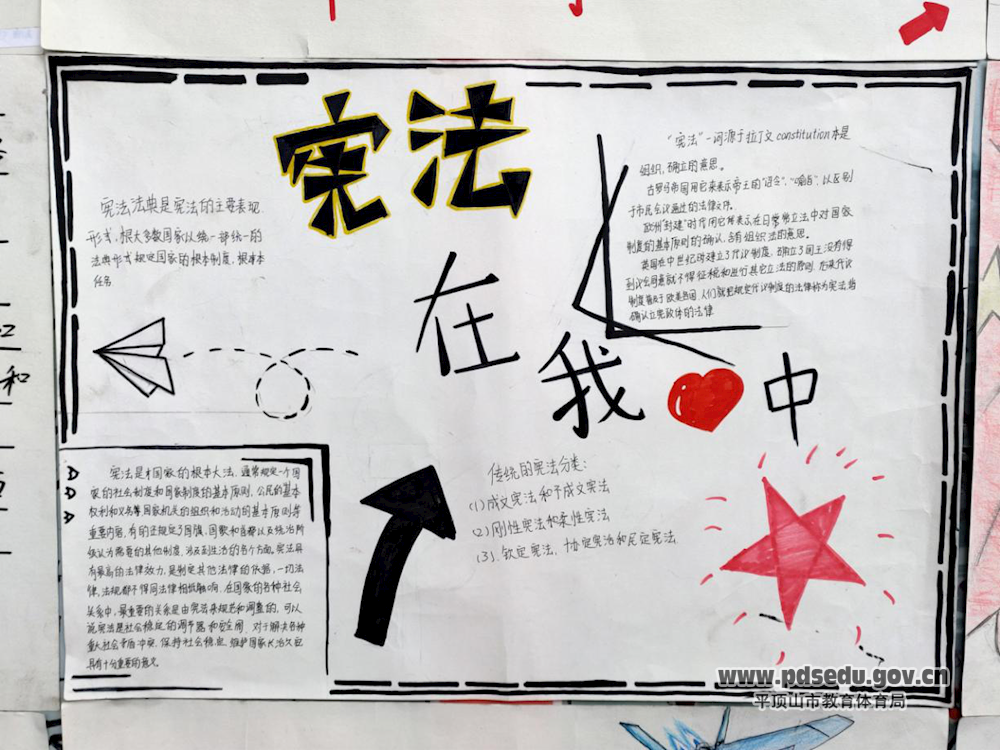 宪法
在
我
中
宪法法典是宪法的主要表现
形式，根大多数国家以统一部统一的
法典形式规定国家的根本制度、根本本
任务
"宪法"一词源于拉丁文constitution本是
组织，确立的意思。
古罗马帝国用它来表示帝王的"诏令"、"谕旨"，以区别
于市民会议通过的法律文件。
欧洲"封建"时代用它来表示在日常常立法中对国家
制度的基本原则的确认，含有组织法的意思。
英国在中世纪时建立了代议制度，确立了国王没有得
到议会同意就不得征税和进行其它立法的原则，后来代议
制度普及于欧美各国，人们就把规定代议制度的法律称为宪法，指
确认立宪政体的法律
宪法是国家的根本大法，通常规定一个国
家的社会制度和国家制度的基本原则、公民的基本
权利和义务等国家机关的组织和活动的基本原则等
重要内容，有的还规定了国旗、国歌和首都以及统治阶
级认为需要的其他制度，涉及到生活的各个方面。宪法具
有最高的法律效力，是制定其他法律的依据，一切法
律、法规都不得同法律相抵触
在国家的各种社会
关系中，最重要的关系是由宪法来规范和调整的，可以
说宪法是社会稳定的调节器和安全阀，对于解决各种
重大社会矛盾冲突，保持社会稳定，维护国家长治久安
具有十分重要的意义
传统的宪法分类：
(1)成文宪法和不成文宪法
(2)刚性宪法和柔性宪法
(3)、钦定宪法、协定宪法和民定宪法
和
www.pdsedu.gov.cn
平顶山市教育体育局